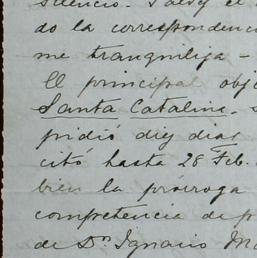 silencio. Salvo el
do la correspondenci
me tranquiliza –
El principal obj
Santa Catalina. s
pidió diez dias
citó hasta 28 Feb.
bien la prórroga
competencia de p
de Dn Ignacio Ma